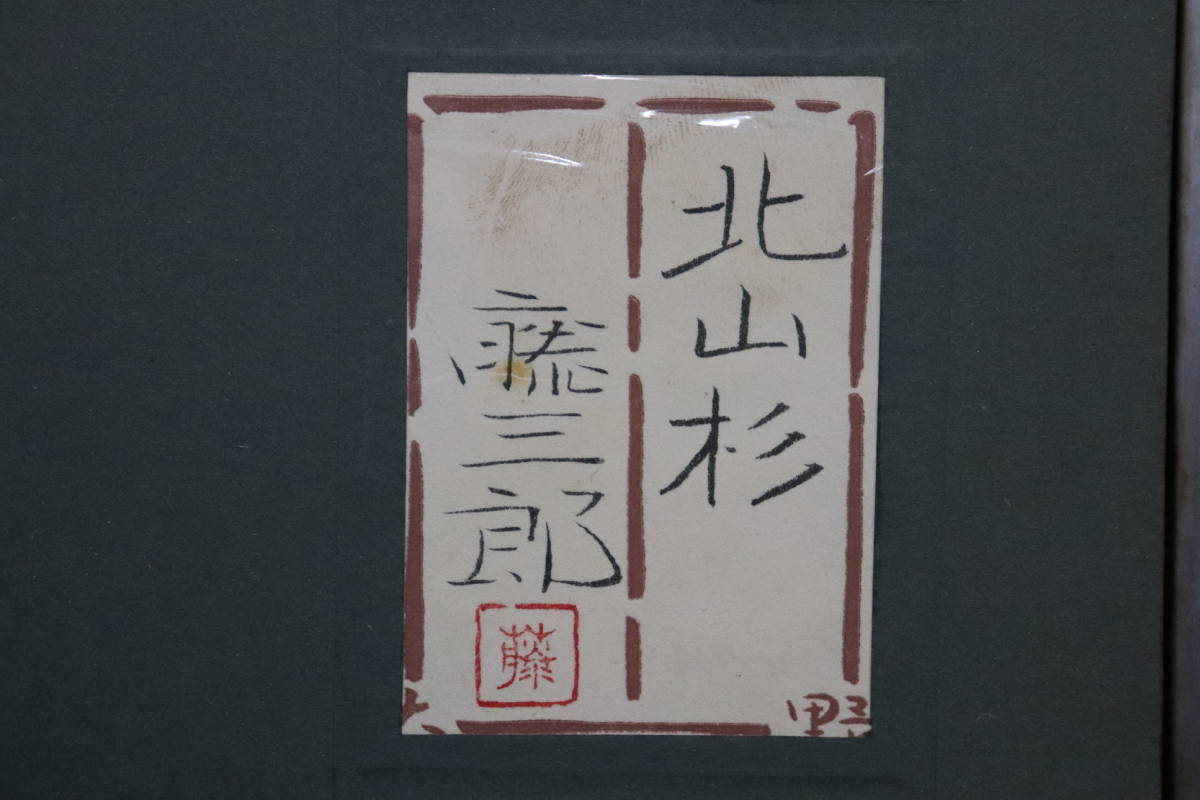 北山杉
藤三郎
藤
野